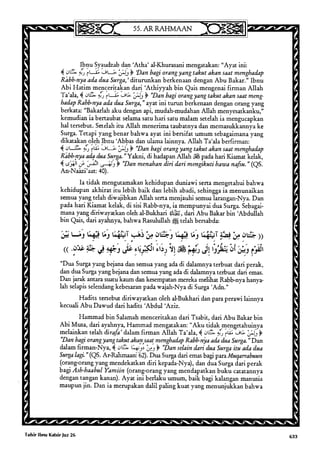 55. AR RAHMAAN
Ibnu Syaudzab dan 'Atha' al-Khurasani mengatakan: "Ayat ini:
﴿ وَلِمَنْ خَافَ مَقَامَ رَبِّهِ جَنَّتَانِ ﴾ 'Dan bagi orang yang takut akan saat menghadap
Rabb-nya ada dua Surga,' diturunkan berkenaan dengan Abu Bakar." Ibnu
Abi Hatim menceritakan dari 'Athiyyah bin Qais mengenai firman Allah
Ta'ala, ﴿ وَلِمَنْ خَافَ مَقَامَ رَبِّهِ جَنَّتَانِ ﴾ "Dan bagi orang yang takut akan saat meng-
hadap Rabb-nya ada dua Surga," ayat ini turun berkenaan dengan orang yang
berkata: "Bakarlah aku dengan api, mudah-mudahan Allah menyesatkanku,"
kemudian ia bertaubat selama satu hari satu malam setelah ia mengucapkan
hal tersebut. Setelah itu Allah menerima taubatnya dan memasukkannya ke
Surga. Tetapi yang benar bahwa ayat ini bersifat umum sebagaimana yang
dikatakan oleh Ibnu 'Abbas dan ulama lainnya. Allah Ta'ala berfirman:
﴿ وَلِمَنْ خَافَ مَقَامَ رَبِّهِ جَنَّتَانِ ﴾ "Dan bagi orang yang takut akan saat menghadap
Rabb-nya ada dua Surga." Yakni, di hadapan Allah ﷻ pada hari Kiamat kelak,
﴿ وَنَهَى النَّفْسَ عَنِ الْهَوَى ﴾ "Dan menahan diri dari mengikuti hawa nafsu." (QS.
An-Naazi'aat: 40).
Ia tidak mengutamakan kehidupan duniawi serta mengetahui bahwa
kehidupan akhirat itu lebih baik dan lebih abadi, sehingga ia menunaikan
semua yang telah diwajibkan Allah serta menjauhi semua larangan-Nya. Dan
pada hari Kiamat kelak, di sisi Rabb-nya, ia mempunyai dua Surga. Sebagai-
mana yang diriwayatkan oleh al-Bukhari, dari Abu Bakar bin 'Abdullah
bin Qais, dari ayahnya, bahwa Rasulullah ﷺ telah bersabda:
(( جَنَّتَانِ مِنْ فِضَّةٍ آنِيَتُهُمَا وَمَا فِيهِمَا وَجَنَّتَانِ مِنْ ذَهَبٍ آنِيَتُهُمَا وَمَا فِيهِمَا وَمَا بَيْنَ
الْقَوْمِ وَبَيْنَ أَنْ يَنْظُرُوا إِلَى رَبِّهِمْ إِلَّا رِدَاءُ الْكِبْرِيَاءِ عَلَى وَجْهِهِ فِي جَنَّةِ عَدْنٍ. ))
"Dua Surga yang bejana dan semua yang ada di dalamnya terbuat dari perak,
dan dua Surga yang bejana dan semua yang ada di dalamnya terbuat dari emas.
Dan jarak antara suatu kaum dan kesempatan mereka melihat Rabb-nya hanya-
lah selapis selendang kebesaran pada wajah-Nya di Surga 'Adn."
Hadits tersebut diriwayatkan oleh al-Bukhari dan para perawi lainnya
kecuali Abu Dawud dari hadits 'Abdul 'Aziz.
Hammad bin Salamah menceritakan dari Tsabit, dari Abu Bakar bin
Abi Musa, dari ayahnya, Hammad mengatakan: "Aku tidak mengetahuinya
melainkan telah dirafa' dalam firman Allah Ta'ala, ﴿ وَلِمَنْ خَافَ مَقَامَ رَبِّهِ جَنَّتَانِ ﴾
"Dan bagi orang yang takut akan saat menghadap Rabb-nya ada dua Surga." Dan
dalam firman-Nya, ﴿ وَمِنْ دُونِهِمَا جَنَّتَانِ ﴾ "Dan selain dari dua Surga itu ada dua
Surga lagi." (QS. Ar-Rahmaan: 62). Dua Surga dari emas bagi para Muqarrabuun
(orang-orang yang mendekatkan diri kepada-Nya), dan dua Surga dari perak
bagi Ash-haabul Yamiin (orang-orang yang mendapatkan buku catatannya
dengan tangan kanan). Ayat ini berlaku umum, baik bagi kalangan manusia
maupun jin. Dan ia merupakan dalil paling kuat yang menunjukkan bahwa
Tafsir Ibnu Katsir Juz 26
633